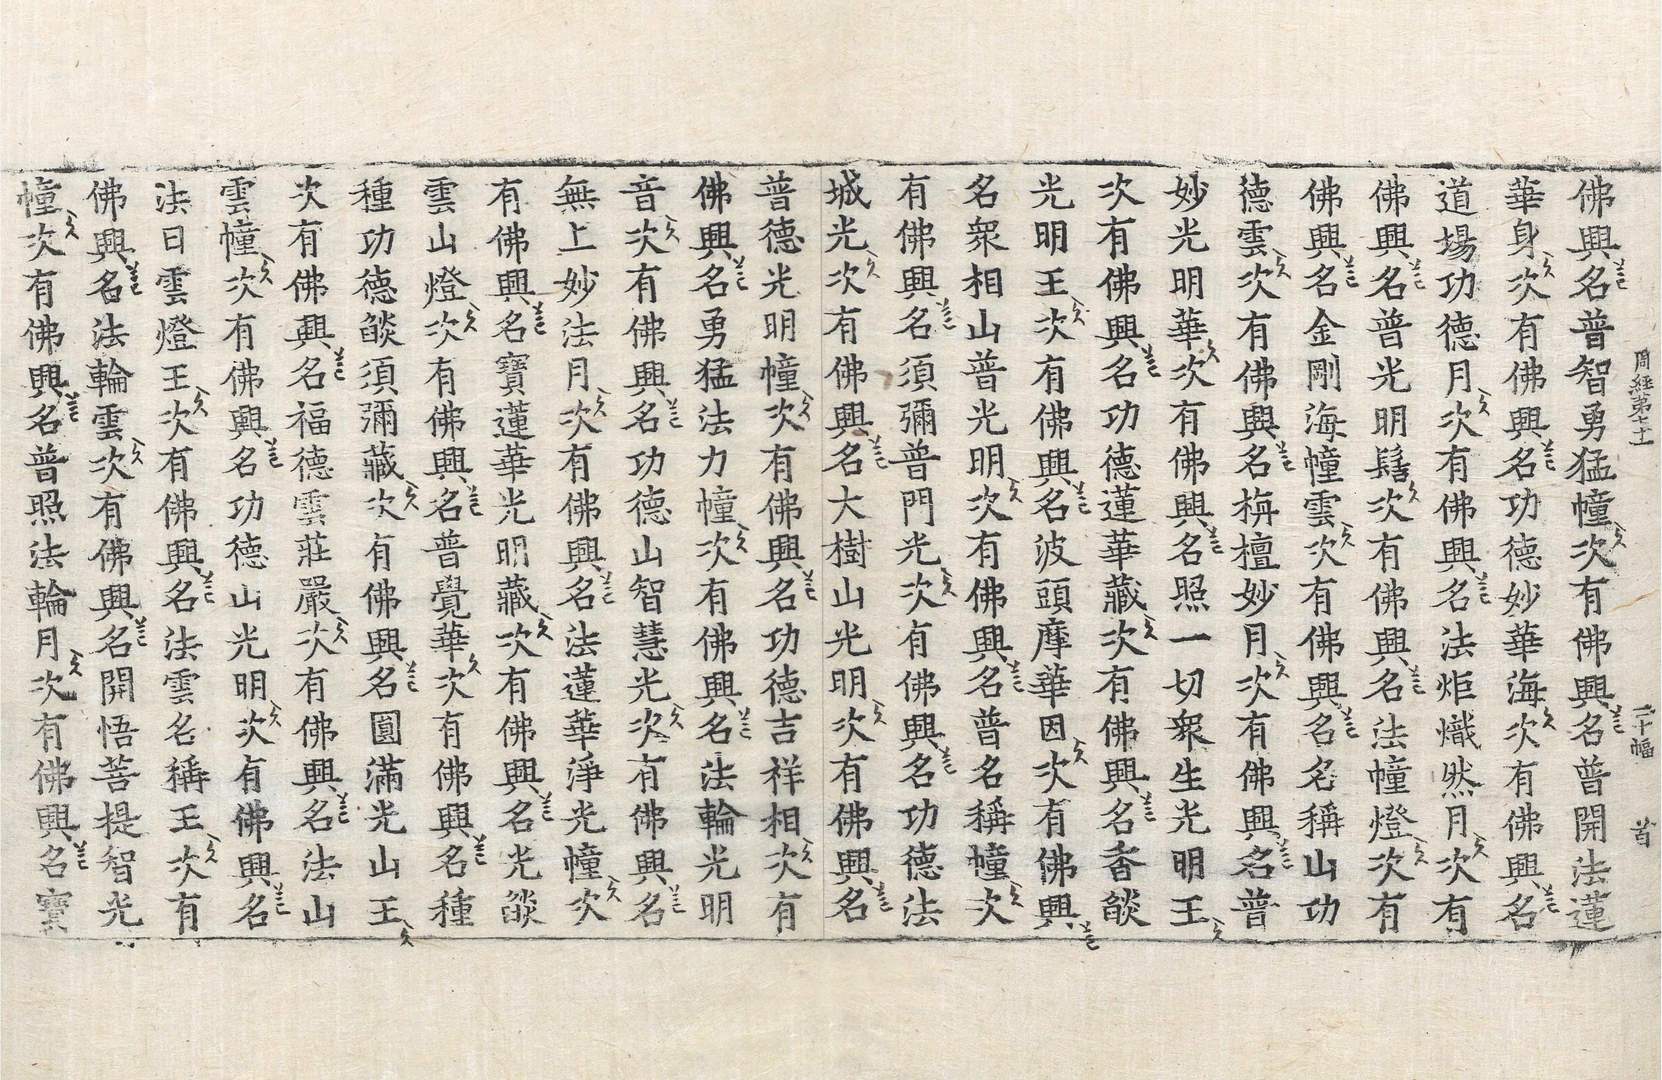 周經第七十一 十幅 首
佛興名普智勇猛幢次有佛興名普開法蓮
華身次有佛興名功德妙華海次有佛興名
道場功德月次有佛興名法炬熾然月次有
佛興名普光明髻次有佛興名法幢燈次有
佛興名金剛海幢雲次有佛興名名稱山功
德雲次有佛興名栴檀妙月次有佛興名普
妙光明華次有佛興名照一切衆生光明王
次有佛興名功德蓮華藏次有佛興名香㷔
光明王次有佛興名波頭摩華因次有佛興
名衆相山普光明次有佛興名普名稱幢次
有佛興名須彌普門光次有佛興名功德法
城光次有佛興名大樹山光明次有佛興名
普德光明幢次有佛興名功德吉祥相次有
佛興名勇猛法力幢次有佛興名法輪光明
音次有佛興名功德山智慧光次有佛興名
無上妙法月次有佛興名法蓮華淨光幢次
有佛興名寶蓮華光明藏次有佛興名光㷔
雲山燈次有佛興名普覺華次有佛興名種
種功德㷔須彌藏次有佛興名圓滿光山王
次有佛興名福德雲莊嚴次有佛興名法山
雲幢次有佛興名功德山光明次有佛興名
法日雲燈王次有佛興名法雲名稱王次有
佛興名法輪雲次有佛興名開悟菩提智光
幢次有佛興名普照法輪月次有佛興名寶